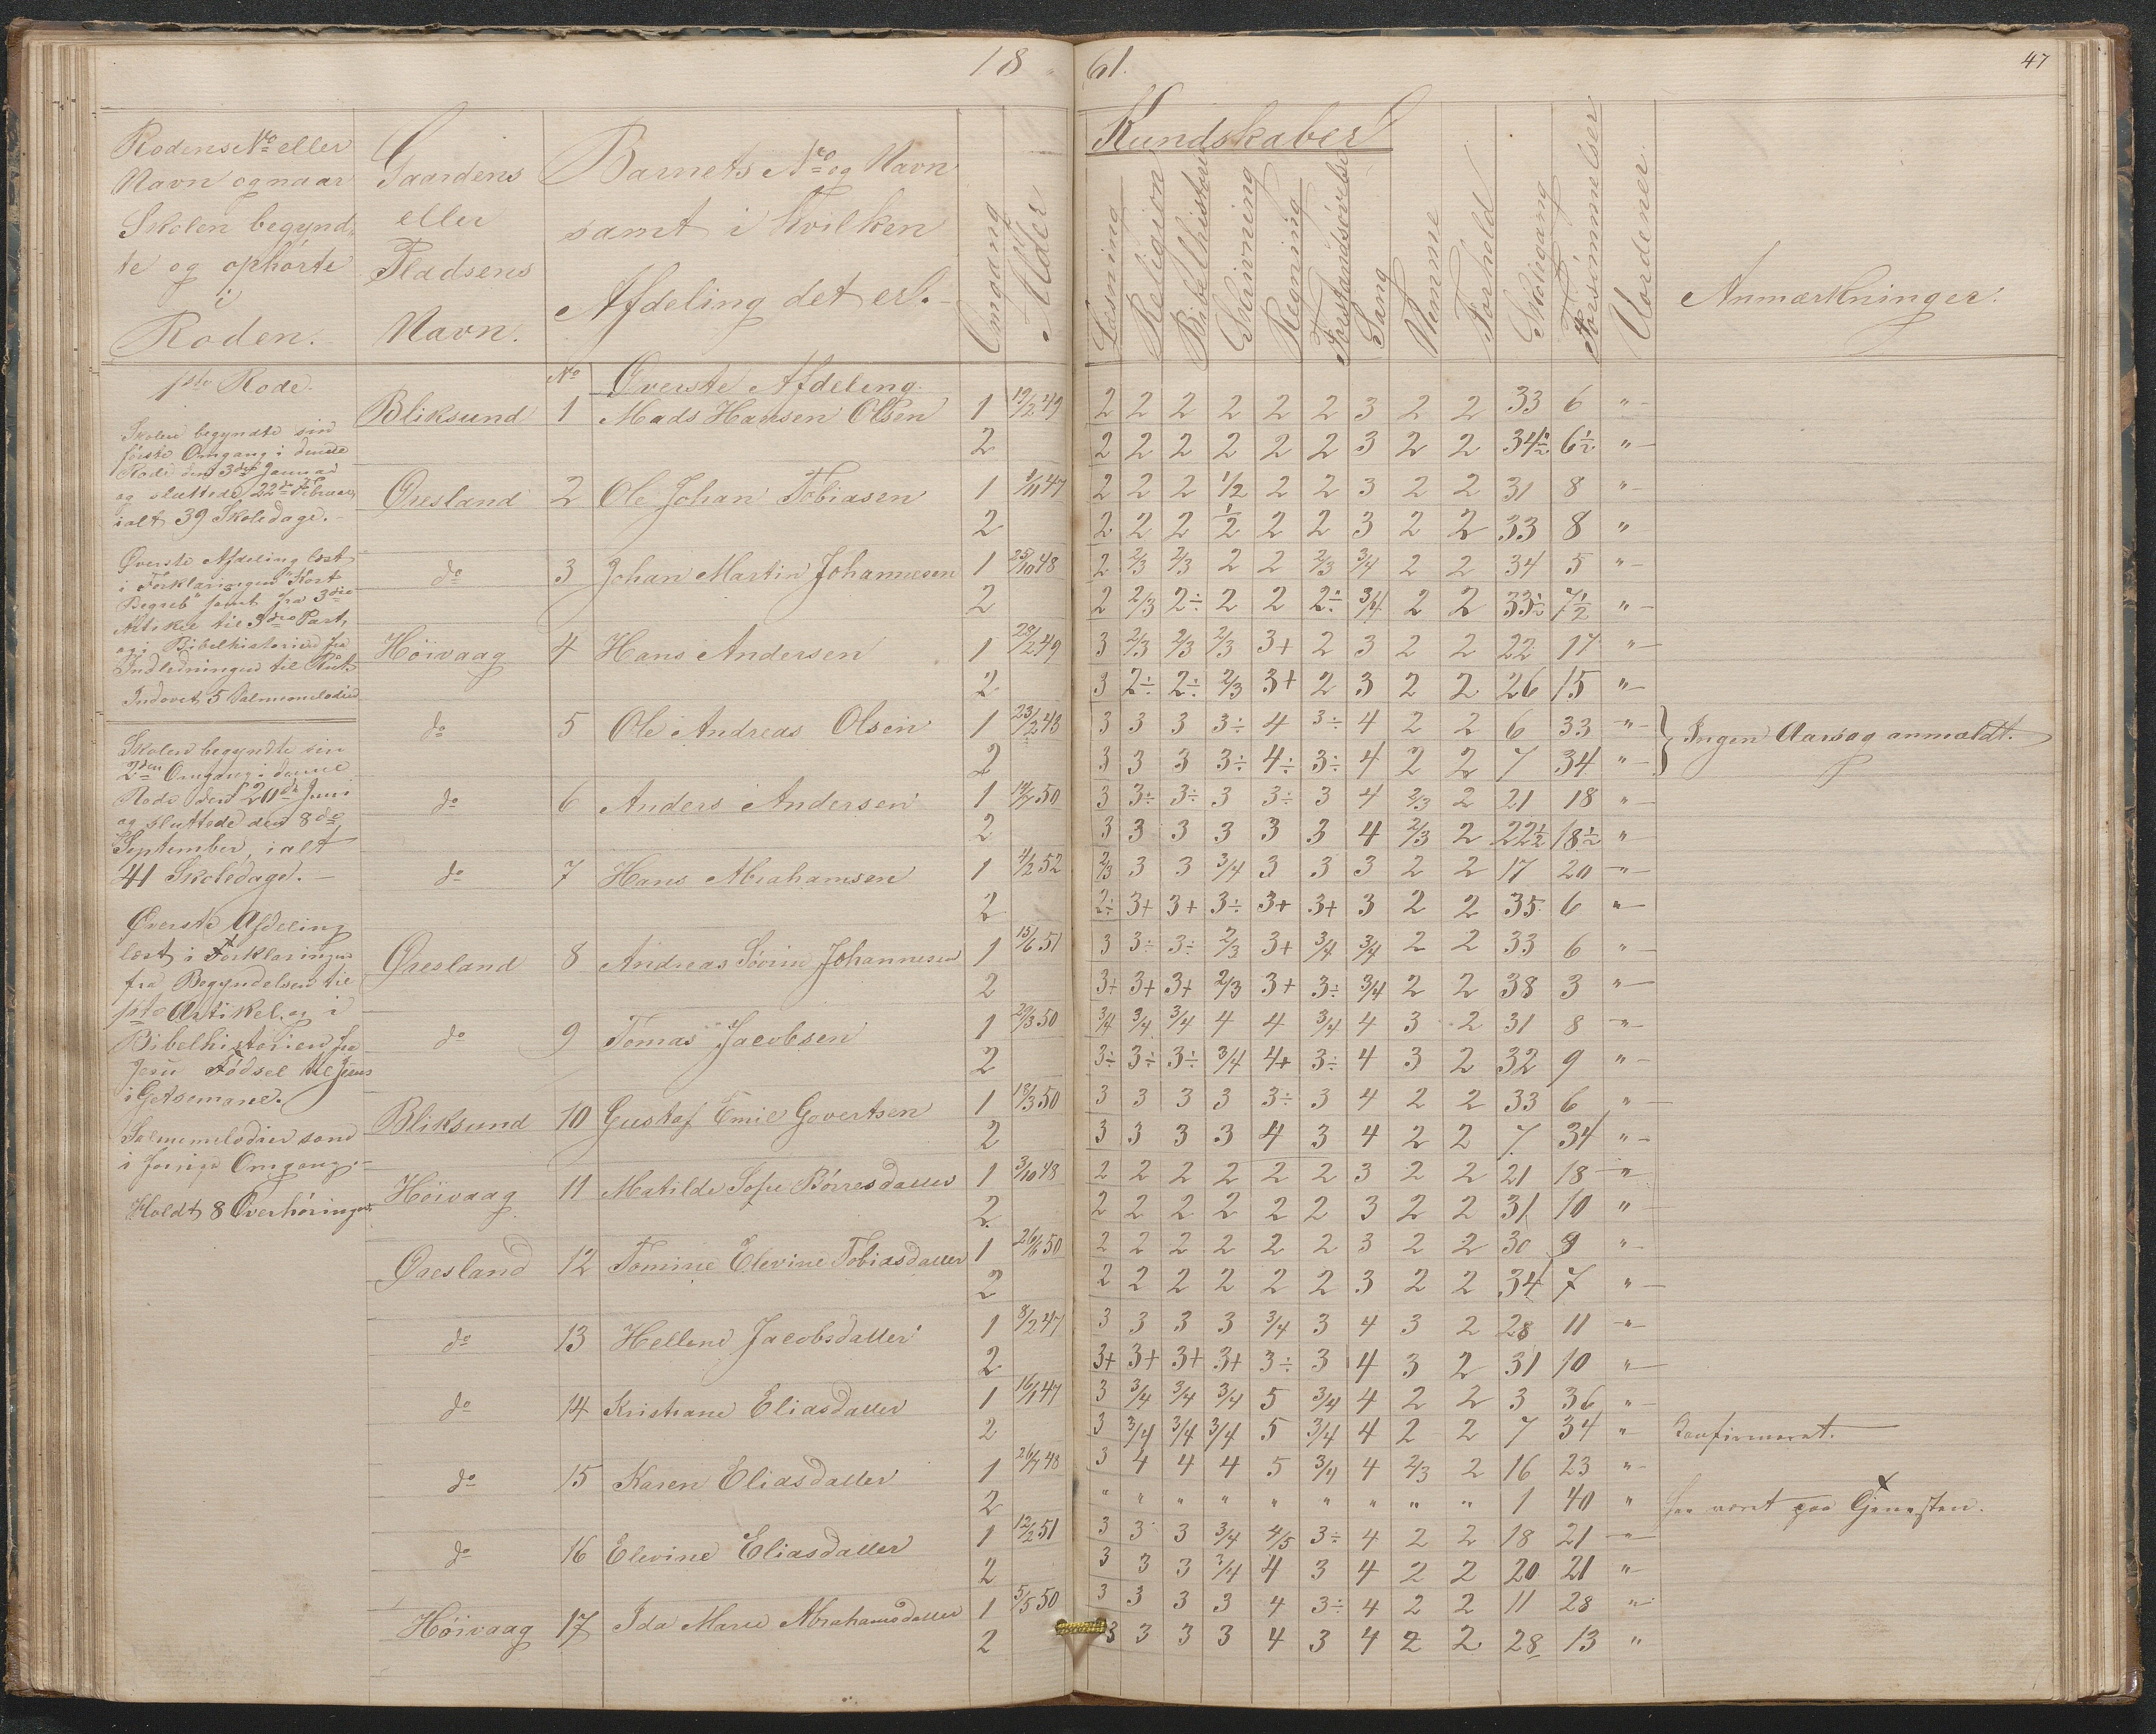 1861.
47
Rodens No eller
Navn og naar
Skolen begynd-
te og ophørte
i
Roden.
Gaardens
eller
Pladsens
Navn.
Barnets No og Navn
samt i hvilken
Afdeling det er.
Omgang
Alder
Kundskaber
Læsning
Religion
Bibelhistorie
Skrivning
Regning
Forstandsøvelse
Sang
Nemme
Forhold
Skolegang
Forsømmelser
Uordener.
Anmærkninger.
1ste Rode.
Skolen begyndte sin
første Omgang i denne
Rode den 3die Januar
og sluttede 22de Februar,
ialt 39 Skoledage.
Øverste Afdeling læst
i Forklaringen "Kort
Begreb" samt fra 3die
Artikel til 3die Part,
og i Bibelhistorien fra
Indledningen til Rut.
Indøvet 5 Salmemelodier
Skolen begyndte sin
2den Omgang i denne
Rode den 20de Juni
og sluttede den 8de
September, ialt
41 Skoledage.
Øverste Afdeling
læst i Forklaringen
fra Begyndelsen til
1ste Artikel, og i
Bibelhistorien fra
Jesu Fødsel til Jesus
i Getsemane.
Salmemelodier som
i forrige Omgang.
Holdt 8 Overhøringer.
No Øverste Afdeling.
Bliksund 1 Mads Hansen Olsen 1 19/2 49 2 2 2 2 2 2 3 2 2 33 6 "
2 2 2 2 2 2 2 3 2 2 34½ 6½ "
Øresland 2 Ole Johan Tobiasen 1 1/11 47 2 2 2 1/2 2 2 3 2 2 31 8 "
2 2 2 2 1/2 2 2 3 2 2 33 8 "
do 3 Johan Martin Johannesen 1 25/10 48 2 2/3 2/3 2 2 2/3 3/4 2 2 34 5 "
2 2 2/3 2÷ 2 2 2÷ 3/4 2 2 33½ 7½ "
Høivaag 4 Hans Andersen 1 28/2 49 3 2/3 2/3 2/3 3+ 2 3 2 2 22 17 "
2 3 2÷ 2÷ 2/3 3+ 2 3 2 2 26 15 "
do 5 Ole Andreas Olsen 1 23/2 48 3 3 3 3÷ 4 3÷ 4 2 2 6 33 " Ingen Aarsag anmældt.
2 3 3 3 3÷ 4÷ 3÷ 4 2 2 7 34 "
do 6 Anders Andersen 1 14/7 50 3 3÷ 3÷ 3 3÷ 3 4 2/3 2 21 18 "
2 3 3 3 3 3 3 4 2/3 2 22½ 18½ "
do 7 Hans Abrahamsen 1 4/2 52 2/3 3 3 3/4 3 3 3 2 2 17 20 "
2 2÷ 3+ 3+ 3÷ 3+ 3+ 3 2 2 35 6 "
Øresland 8 Andreas Sørin Johannesen 1 15/6 51 3 3÷ 3÷ 2/3 3+ 3/4 3/4 2 2 33 6 "
2 3+ 3+ 3+ 2/3 3+ 3÷ 3/4 2 2 38 3 "
do 9 Tomas Jacobsen 1 29/3 50 3/4 3/4 3/4 4 4 3/4 4 3 2 31 8 "
2 3÷ 3÷ 3÷ 3/4 4+ 3÷ 4 3 2 32 9 "
Bliksund 10 Gustaf Emil Govertsen 1 18/3 50 3 3 3 3 3÷ 3 4 2 2 33 6 "
2 3 3 3 3 4 3 4 2 2 7 34 "
Høivaag 11 Matilde Sofie Børresdatter 1 3/10 48 2 2 2 2 2 2 3 2 2 21 18 "
2 2 2 2 2 2 2 3 2 2 31 10 "
Øresland 12 Tomine Elevine Tobiasdatter 1 26/6 50 2 2 2 2 2 2 3 2 2 30 9 "
2 2 2 2 2 2 2 3 2 2 34 7 "
do 13 Hellene Jacobsdatter 1 8/2 47 3 3 3 3 3/4 3 4 3 2 28 11 "
2 3+ 3+ 3+ 3+ 3÷ 3 4 3 2 31 10 "
do 14 Kristiane Eliasdatter 1 16/1 47 3 3/4 3/4 3/4 5 3/4 4 2 2 3 36 "
2 3 3/4 3/4 3/4 5 3/4 4 2 2 7 34 " Konfirmeret.
do 15 Karen Eliasdatter 1 26/7 48 3 4 4 4 5 3/4 4 2/3 2 16 23 "
2 " " " " " " " " " 1 40 " har været paa Gjenesten.
do 16 Elevine Eliasdatter 1 12/2 51 3 3 3 3/4 4/5 3÷ 4 2 2 18 21 "
2 3 3 3 3/4 4 3 4 2 2 20 21 "
Høivaag 17 Ida Marie Abrahamsdatter 1 5/5 50 3 3 3 3 4 3÷ 4 2 2 11 28 "
2 3 3 3 3 4 3 4 2 2 28 13 "